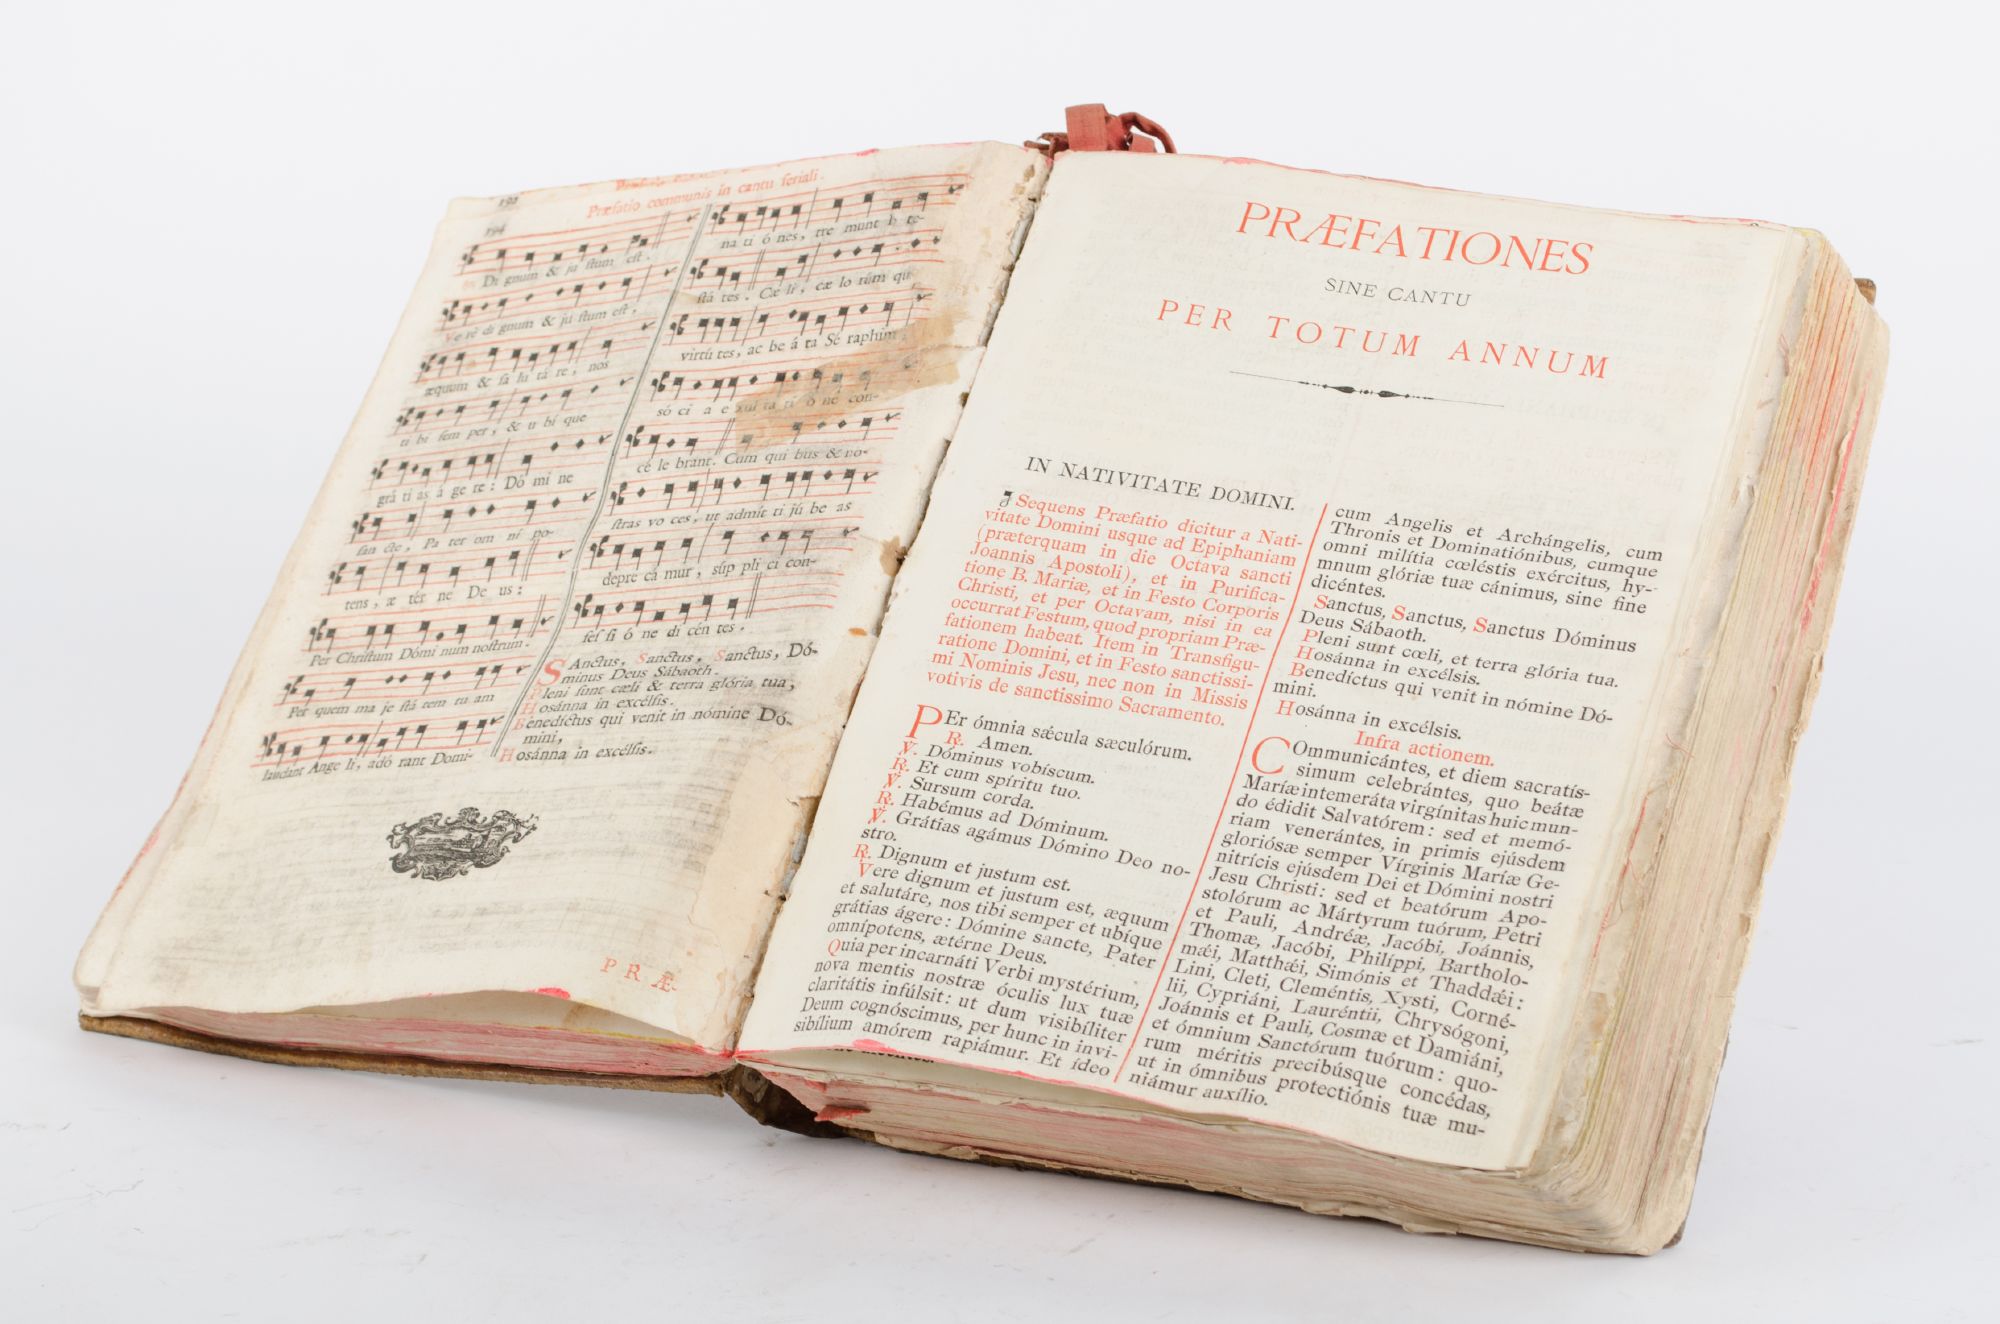 192
194
Præfatio communis in cantu feriali.
℟. Di gnum & ju stum est.
Ve rè di gnum & ju stum est,
æquum & sa lu tá re, nos
ti bi sem per, & u bí que
grá ti as á ge re: Dó mi ne
san cte, Pa ter om ní po-
tens, æ tér ne De us:
Per Christum Dómi num nostrum.
Per quem ma je stá tem tu am
laudant Ange li, adó rant Domi-
na ti ó nes, tre munt
stá tes. Cæ li, cæ lo rúm
virtú tes, ac be á ta Sé raphim,
só ci a e xul ta ti ó ne con-
cé le brant. Cum qui bus & no-
stras vo ces, ut admít ti jú be as
depre cá mur, súp pli ci con-
fes si ó ne di cén tes.
SAnctus, Sanctus, Sanctus, Dó-
minus Deus Sábaoth.
Pleni sunt cæli & terra glória tua,
Hosánna in excélsis.
Benedíctus qui venit in nómine Dó-
mini,
Hosánna in excélsis.
PRÆ-
PRÆFATIONES
SINE CANTU
PER TOTUM ANNUM
IN NATIVITATE DOMINI.
Sequens Præfatio dicitur a Nati-
vitate Domini usque ad Epiphaniam
(præterquam in die Octava sancti
Joannis Apostoli), et in Purifica-
tione B. Mariæ, et in Festo Corporis
Christi, et per Octavam, nisi in ea
occurrat Festum, quod propriam Præ-
fationem habeat. Item in Transfigu-
ratione Domini, et in Festo sanctissi-
mi Nominis Jesu, nec non in Missis
votivis de sanctissimo Sacramento.
PEr ómnia sǽcula sæculórum.
℟. Amen.
℣. Dóminus vobíscum.
℟. Et cum spíritu tuo.
℣. Sursum corda.
℟. Habémus ad Dóminum.
℣. Grátias agámus Dómino Deo no-
stro.
℟. Dignum et justum est.
Vere dignum et justum est, æquum
et salutáre, nos tibi semper et ubíque
grátias ágere: Dómine sancte, Pater
omnípotens, ætérne Deus.
Quia per incarnáti Verbi mystérium,
nova mentis nostræ óculis lux tuæ
claritátis infúlsit: ut dum visibíliter
Deum cognóscimus, per hunc in invi-
sibílium amórem rapiámur. Et ídeo
cum Angelis et Archángelis, cum
Thronis et Dominatiónibus, cumque
omni milítia cœléstis exércitus, hy-
mnum glóriæ tuæ cánimus, sine fine
dicéntes.
Sanctus, Sanctus, Sanctus Dóminus
Deus Sábaoth.
Pleni sunt cœli, et terra glória tua.
Hosánna in excélsis.
Benedíctus qui venit in nómine Dó-
mini.
Hosánna in excélsis.
Infra actionem.
COmmunicántes, et diem sacratís-
simum celebrántes, quo beátæ
Maríæ intemeráta virgínitas huic mun-
do édidit Salvatórem: sed et memó-
riam venerántes, in primis ejúsdem
gloriósæ semper Vírginis Maríæ Ge-
nitrícis ejúsdem Dei et Dómini nostri
Jesu Christi: sed et beatórum Apo-
stolórum ac Mártyrum tuórum, Petri
et Pauli, Andréæ, Jacóbi, Joánnis,
Thomæ, Jacóbi, Philíppi, Bartholo-
mǽi, Matthǽi, Simónis et Thaddǽi:
Lini, Cleti, Cleméntis, Xysti, Corné-
lii, Cypriáni, Lauréntii, Chrysógoni,
Joánnis et Pauli, Cosmæ et Damiáni,
et ómnium Sanctórum tuórum: quo-
rum méritis precibúsque concédas,
ut in ómnibus protectiónis tuæ mu-
niámur auxílio.